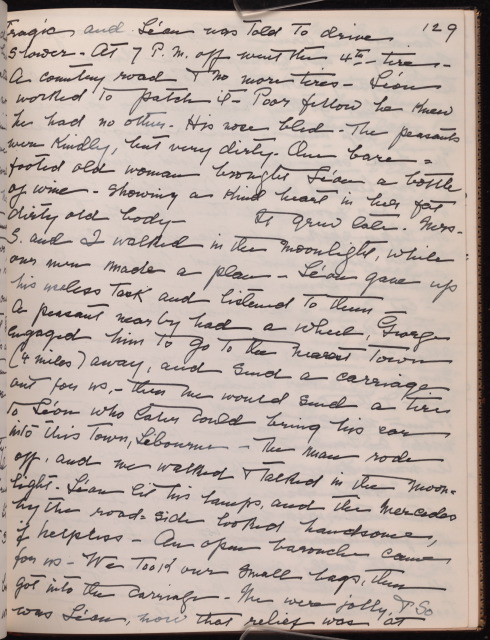 129
Tragic and Léon was told to drive
slower - At 7 P.M. off went the 4th tire -
A country road & no more tires - Léon
worked to patch it - Poor fellow he knew
he had no other. His nose bled - The peasants
were kindly, but very dirty. One bare =
footed old woman brought Léon a bottle
of wine - showing a kind heart in her fat
dirty old body - It grew late. Mrs.
S. and I walked in the moonlight, while
our men made a plan - Léon gave up
his useless task and listened to them -
A peasant near by had a wheel, George
engaged him to go to the nearest town
(4 miles) away, and send a carriage
out for us, - then he would send a tire
to Léon who later could bring his car
into this town, Libourne - The man rode
off, and we walked & talked in the moon=
light. Léon lit his lamps, and the Mercedes
by the road-side looked handsome,
if helpless - An open barouche came
for us - We took our small bags, then
got into the carriage - We were jolly, & so
was Léon, now that relief was at